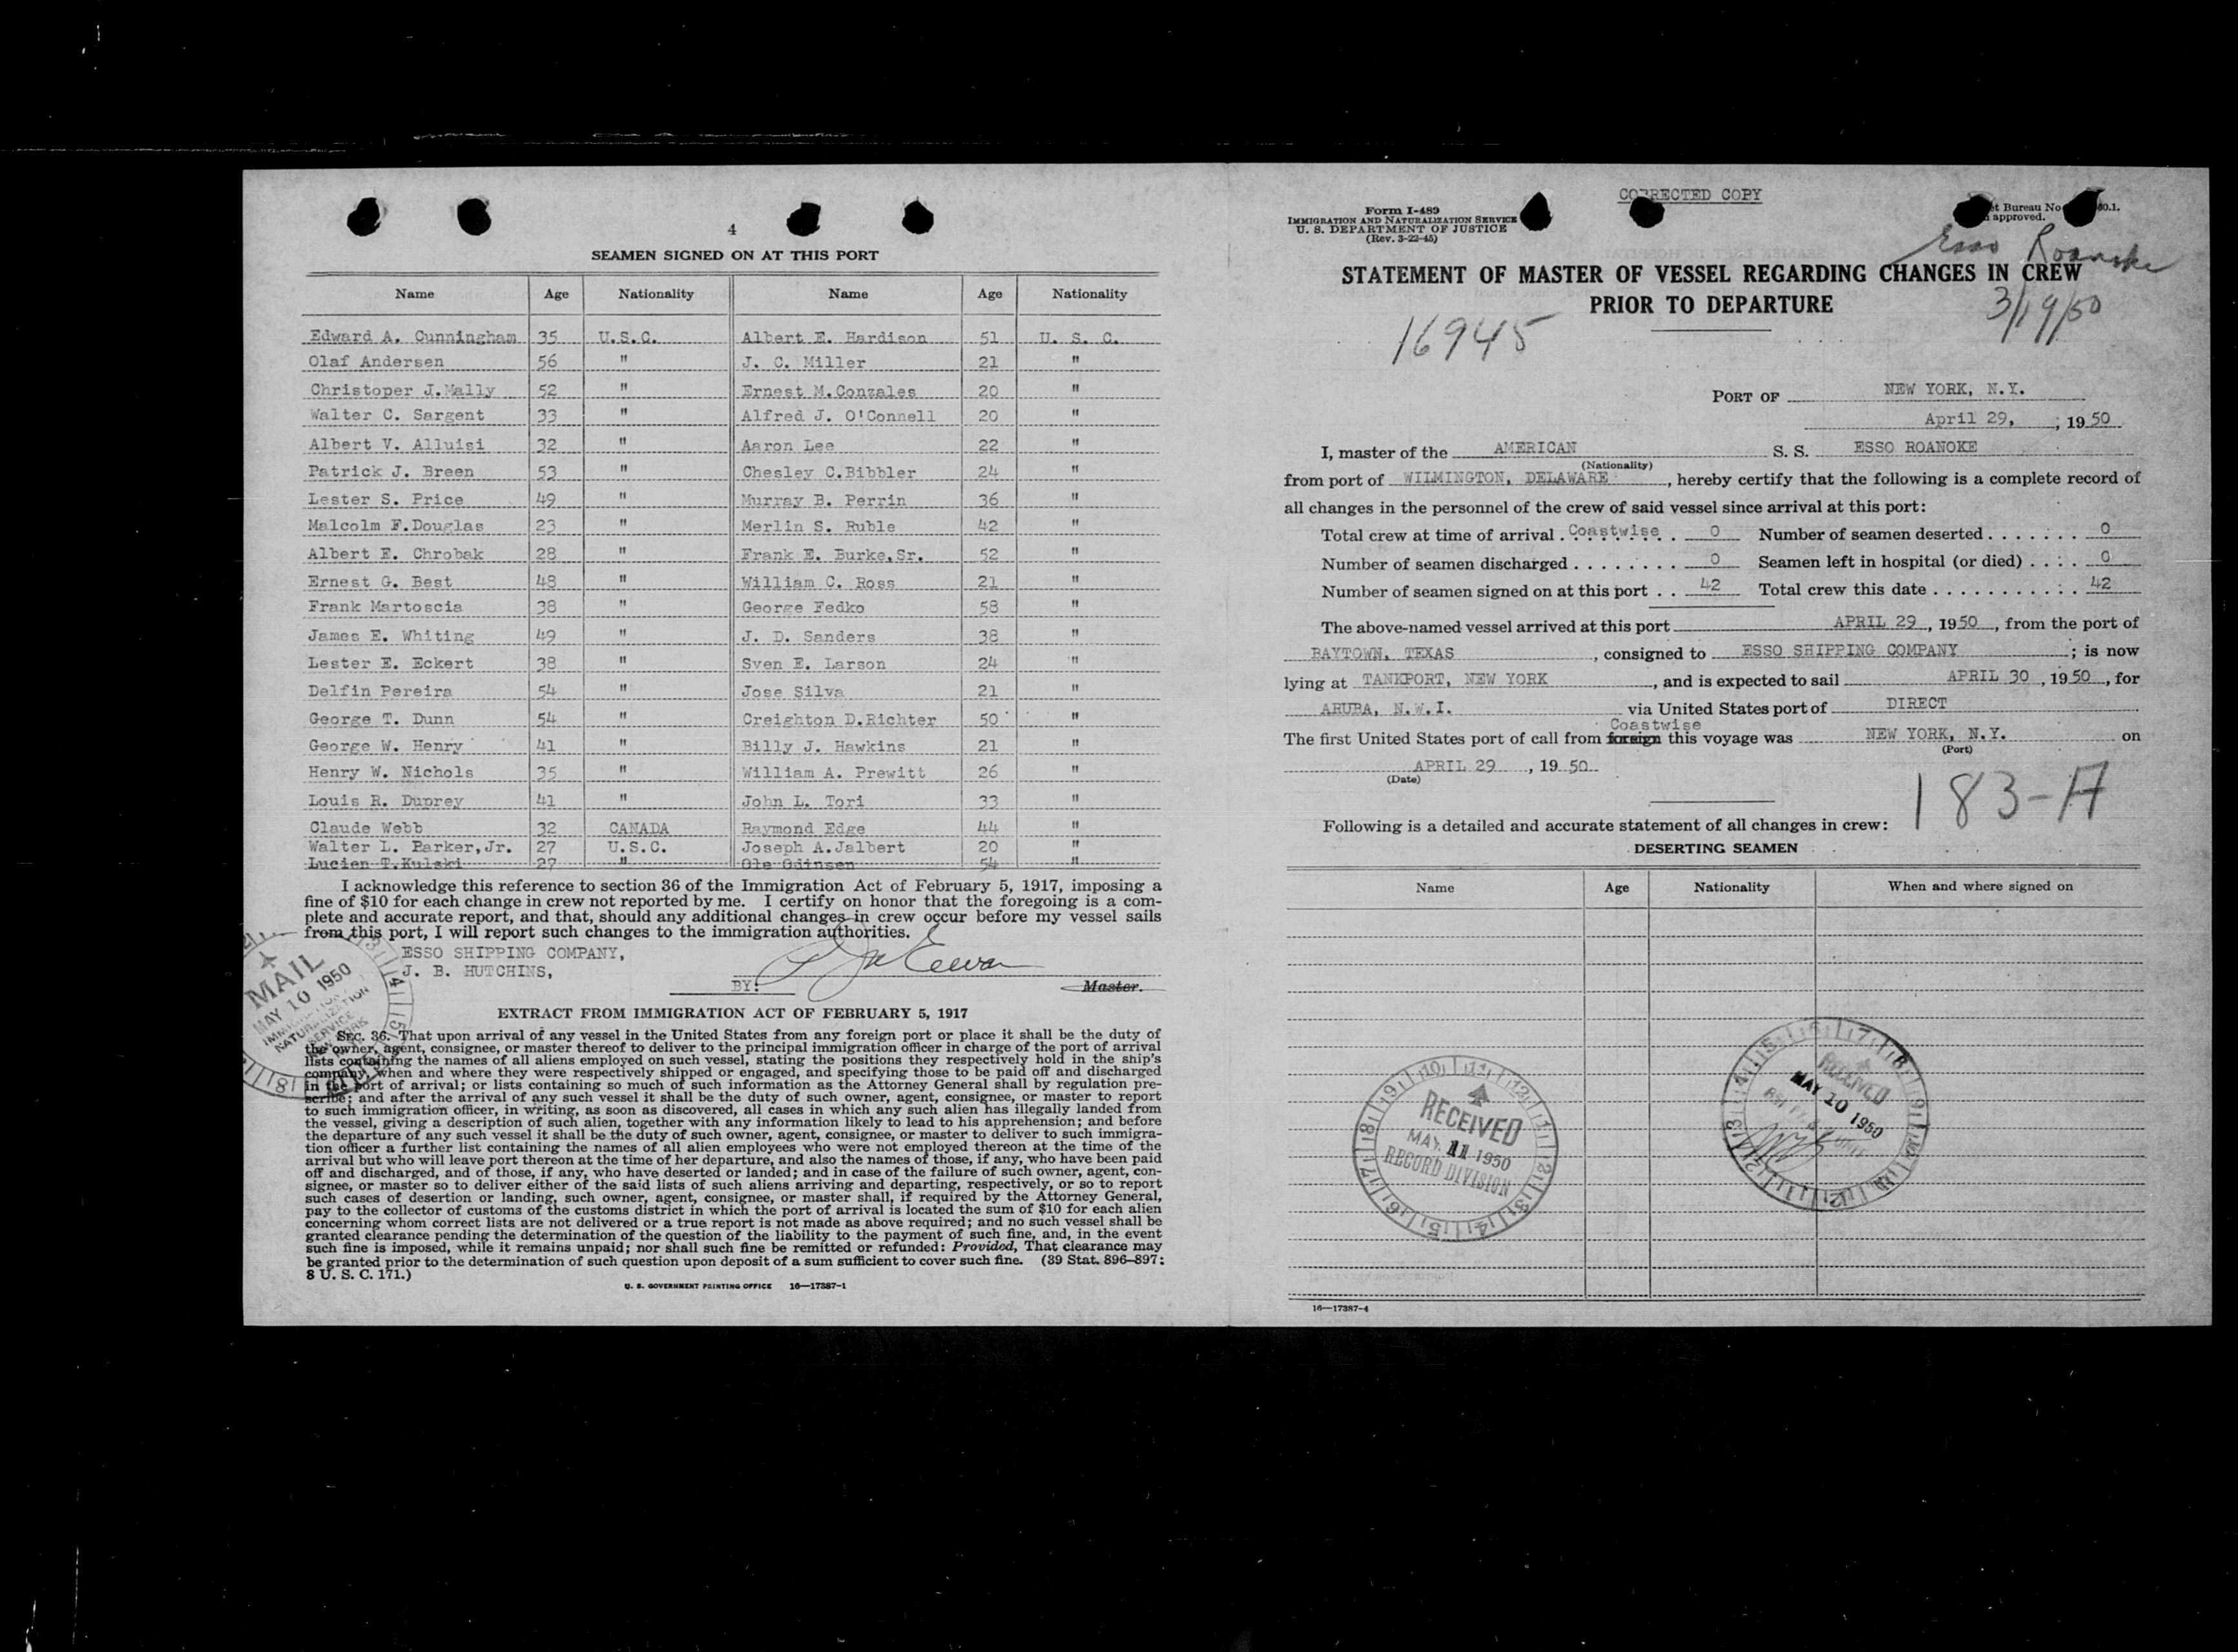 4
SEAMEN SIGNED ON AT THIS PORT
Name Age Nationality Name Age Nationality
Edward A. Cunningham 35 U.S.C. Albert E. Hardison 51 U. S. C.
Olaf Andersen 56 " J. C. Miller 21 "
Christoper J.Mally 52 " Ernest M.Conzales 20 "
Walter C. Sargent 33 " Alfred J. O'Connell 20 "
Albert V. Alluisi 32 " Aaron Lee 22 "
Patrick J. Breen 53 " Chesley C.Bibbler 24 "
Lester S. Price 49 " Murray B. Perrin 36 "
Malcolm F.Douglas 23 " Merlin S. Ruble 42 "
Albert E. Chrobak 28 " Frank E. Burke,Sr. 52 "
Ernest G. Best 48 " William C. Ross 21 "
Frank Martoscia 38 " George Fedko 58 "
James E. Whiting 49 " J. D. Sanders 38 "
Lester E. Eckert 38 " Sven E. Larson 24 "
Delfin Pereira 54 " Jose Silva 21 "
George T. Dunn 54 " Creighton D.Richter 50 "
George W. Henry 41 " Billy J. Hawkins 21 "
Henry W. Nichols 35 " William A. Prewitt 26 "
Louis R. Duprey 41 " John L. Tori 33 "
Claude Webb 32 CANADA Raymond Edge 44 "
Walter L. Parker,Jr. 27 U.S.C. Joseph A.Jalbert 20 "
Lucien T.Kulski 27 " Ole Odinsen 54 "
I acknowledge this reference to section 36 of the Immigration Act of February 5, 1917, imposing a
fine of $10 for each change in crew not reported by me. I certify on honor that the foregoing is a com-
plete and accurate report, and that, should any additional changes in crew occur before my vessel sails
from this port, I will report such changes to the immigration authorities.
ESSO SHIPPING COMPANY,
J. B. HUTCHINS,
BY: Master.
MAIL
MAY 10 1950
IMMIGRATION
NATURALIZATION
SERVICE
EXTRACT FROM IMMIGRATION ACT OF FEBRUARY 5, 1917
SEC. 36. That upon arrival of any vessel in the United States from any foreign port or place it shall be the duty of
the owner, agent, consignee, or master thereof to deliver to the principal immigration officer in charge of the port of arrival
lists containing the names of all aliens employed on such vessel, stating the positions they respectively hold in the ship's
company, when and where they were respectively shipped or engaged, and specifying those to be paid off and discharged
in the port of arrival; or lists containing so much of such information as the Attorney General shall by regulation pre-
scribe; and after the arrival of any such vessel it shall be the duty of such owner, agent, consignee, or master to report
to such immigration officer, in writing, as soon as discovered, all cases in which any such alien has illegally landed from
the vessel, giving a description of such alien, together with any information likely to lead to his apprehension; and before
the departure of any such vessel it shall be the duty of such owner, agent, consignee, or master to deliver to such immigra-
tion officer a further list containing the names of all alien employees who were not employed thereon at the time of the
arrival but who will leave port thereon at the time of her departure, and also the names of those, if any, who have been paid
off and discharged, and of those, if any, who have deserted or landed; and in case of the failure of such owner, agent, con-
signee, or master so to deliver either of the said lists of such aliens arriving and departing, respectively, or so to report
such cases of desertion or landing, such owner, agent, consignee, or master shall, if required by the Attorney General,
pay to the collector of customs of the customs district in which the port of arrival is located the sum of $10 for each alien
concerning whom correct lists are not delivered or a true report is not made as above required; and no such vessel shall be
granted clearance pending the determination of the question of the liability to the payment of such fine, and, in the event
such fine is imposed, while it remains unpaid; nor shall such fine be remitted or refunded: Provided, That clearance may
be granted prior to the determination of such question upon deposit of a sum sufficient to cover such fine. (39 Stat. 896-897;
8 U. S. C. 171.)
U. S. GOVERNMENT PRINTING OFFICE 16—17387-1
CORRECTED COPY
Form I-489
IMMIGRATION AND NATURALIZATION SERVICE
U. S. DEPARTMENT OF JUSTICE
(Rev. 3-22-45)
Bureau No
approved.
Esso Roanoke
STATEMENT OF MASTER OF VESSEL REGARDING CHANGES IN CREW
PRIOR TO DEPARTURE
3/19/50
16945
PORT OF NEW YORK, N.Y.
April 29, , 19 50
I, master of the AMERICAN S. S. ESSO ROANOKE
(Nationality)
from port of WILMINGTON, DELAWARE , hereby certify that the following is a complete record of
all changes in the personnel of the crew of said vessel since arrival at this port:
Total crew at time of arrival . Coastwise . 0 Number of seamen deserted . . . . . . . 0
Number of seamen discharged . . . . . . . . 0 Seamen left in hospital (or died) . . . . 0
Number of seamen signed on at this port . . 42 Total crew this date . . . . . . . . . . . 42
The above-named vessel arrived at this port APRIL 29 , 19 50 , from the port of
BAYTOWN, TEXAS , consigned to ESSO SHIPPING COMPANY ; is now
lying at TANKPORT, NEW YORK , and is expected to sail APRIL 30 , 19 50 , for
ARUBA, N.W.I. via United States port of DIRECT
Coastwise
The first United States port of call from foreign this voyage was NEW YORK, N.Y. on
(Port)
APRIL 29 , 19 50
(Date)
183-A
Following is a detailed and accurate statement of all changes in crew:
DESERTING SEAMEN
Name Age Nationality When and where signed on
RECEIVED
MAY 11 1950
RECORD DIVISION
RECEIVED
MAY 10 1950
16—17387-4